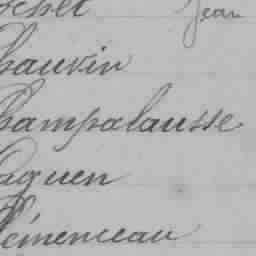 Jean
hauvin
hampalausse
aquen
lémenceau